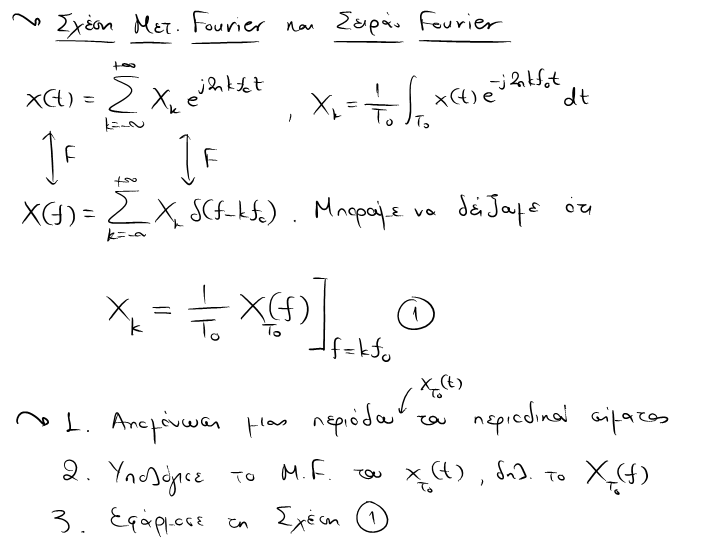 ~> Σχέση Μετ. Fourier και Σειράς Fourier
x(t) = Σ_{k=-∞}^{+∞} X_k e^{j2πkf₀t} , X_k = 1/T₀ ∫_{T₀} x(t) e^{-j2πkf₀t} dt
↕ F ↕ F
X(f) = Σ_{k=-∞}^{+∞} X_k δ(f-kf₀) . Μπορούμε να δείξουμε ότι
X_k = 1/T₀ X_{T₀}(f) ]_{f=kf₀} ①
x_{T₀}(t)
~> 1. Απομόνωσε μιας περιόδου του περιοδικού σήματος
2. Υπολόγισε το Μ.F. του x_{T₀}(t) , δηλ. το X_{T₀}(f)
3. Εφάρμοσε τη Σχέση ①